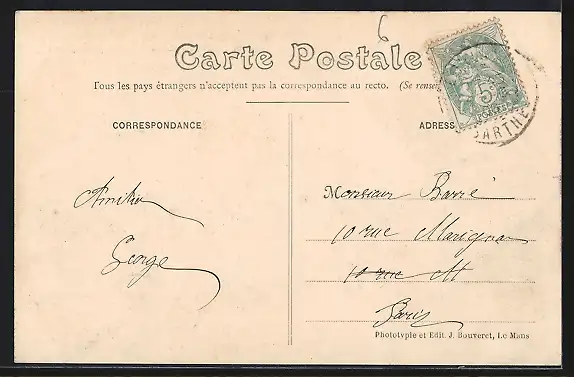 6
Carte Postale
Tous les pays étrangers n'acceptent pas la correspondance au recto. (Se rensei
5c
POSTES
SARTHE
CORRESPONDANCE
ADRESS
Monsieur Barré
Amitiés
10 rue Marignan
George
10 rue M
Paris
Phototypie et Edit. J. Bouveret, Le Mans